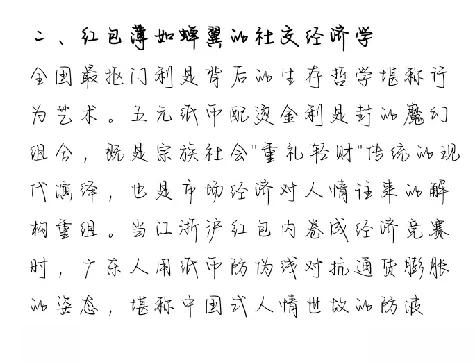 二、红包薄如蝉翼的社交经济学
全国最抠门利是背后的生存哲学堪称行
为艺术。五元纸币配烫金利是封的魔幻
组合，既是宗族社会"重礼轻财"传统的现
代演绎，也是市场经济对人情往来的解
构重组。当江浙沪红包内卷成经济竞赛
时，广东人用纸币防伪线对抗通货膨胀
的姿态，堪称中国式人情世故的防波